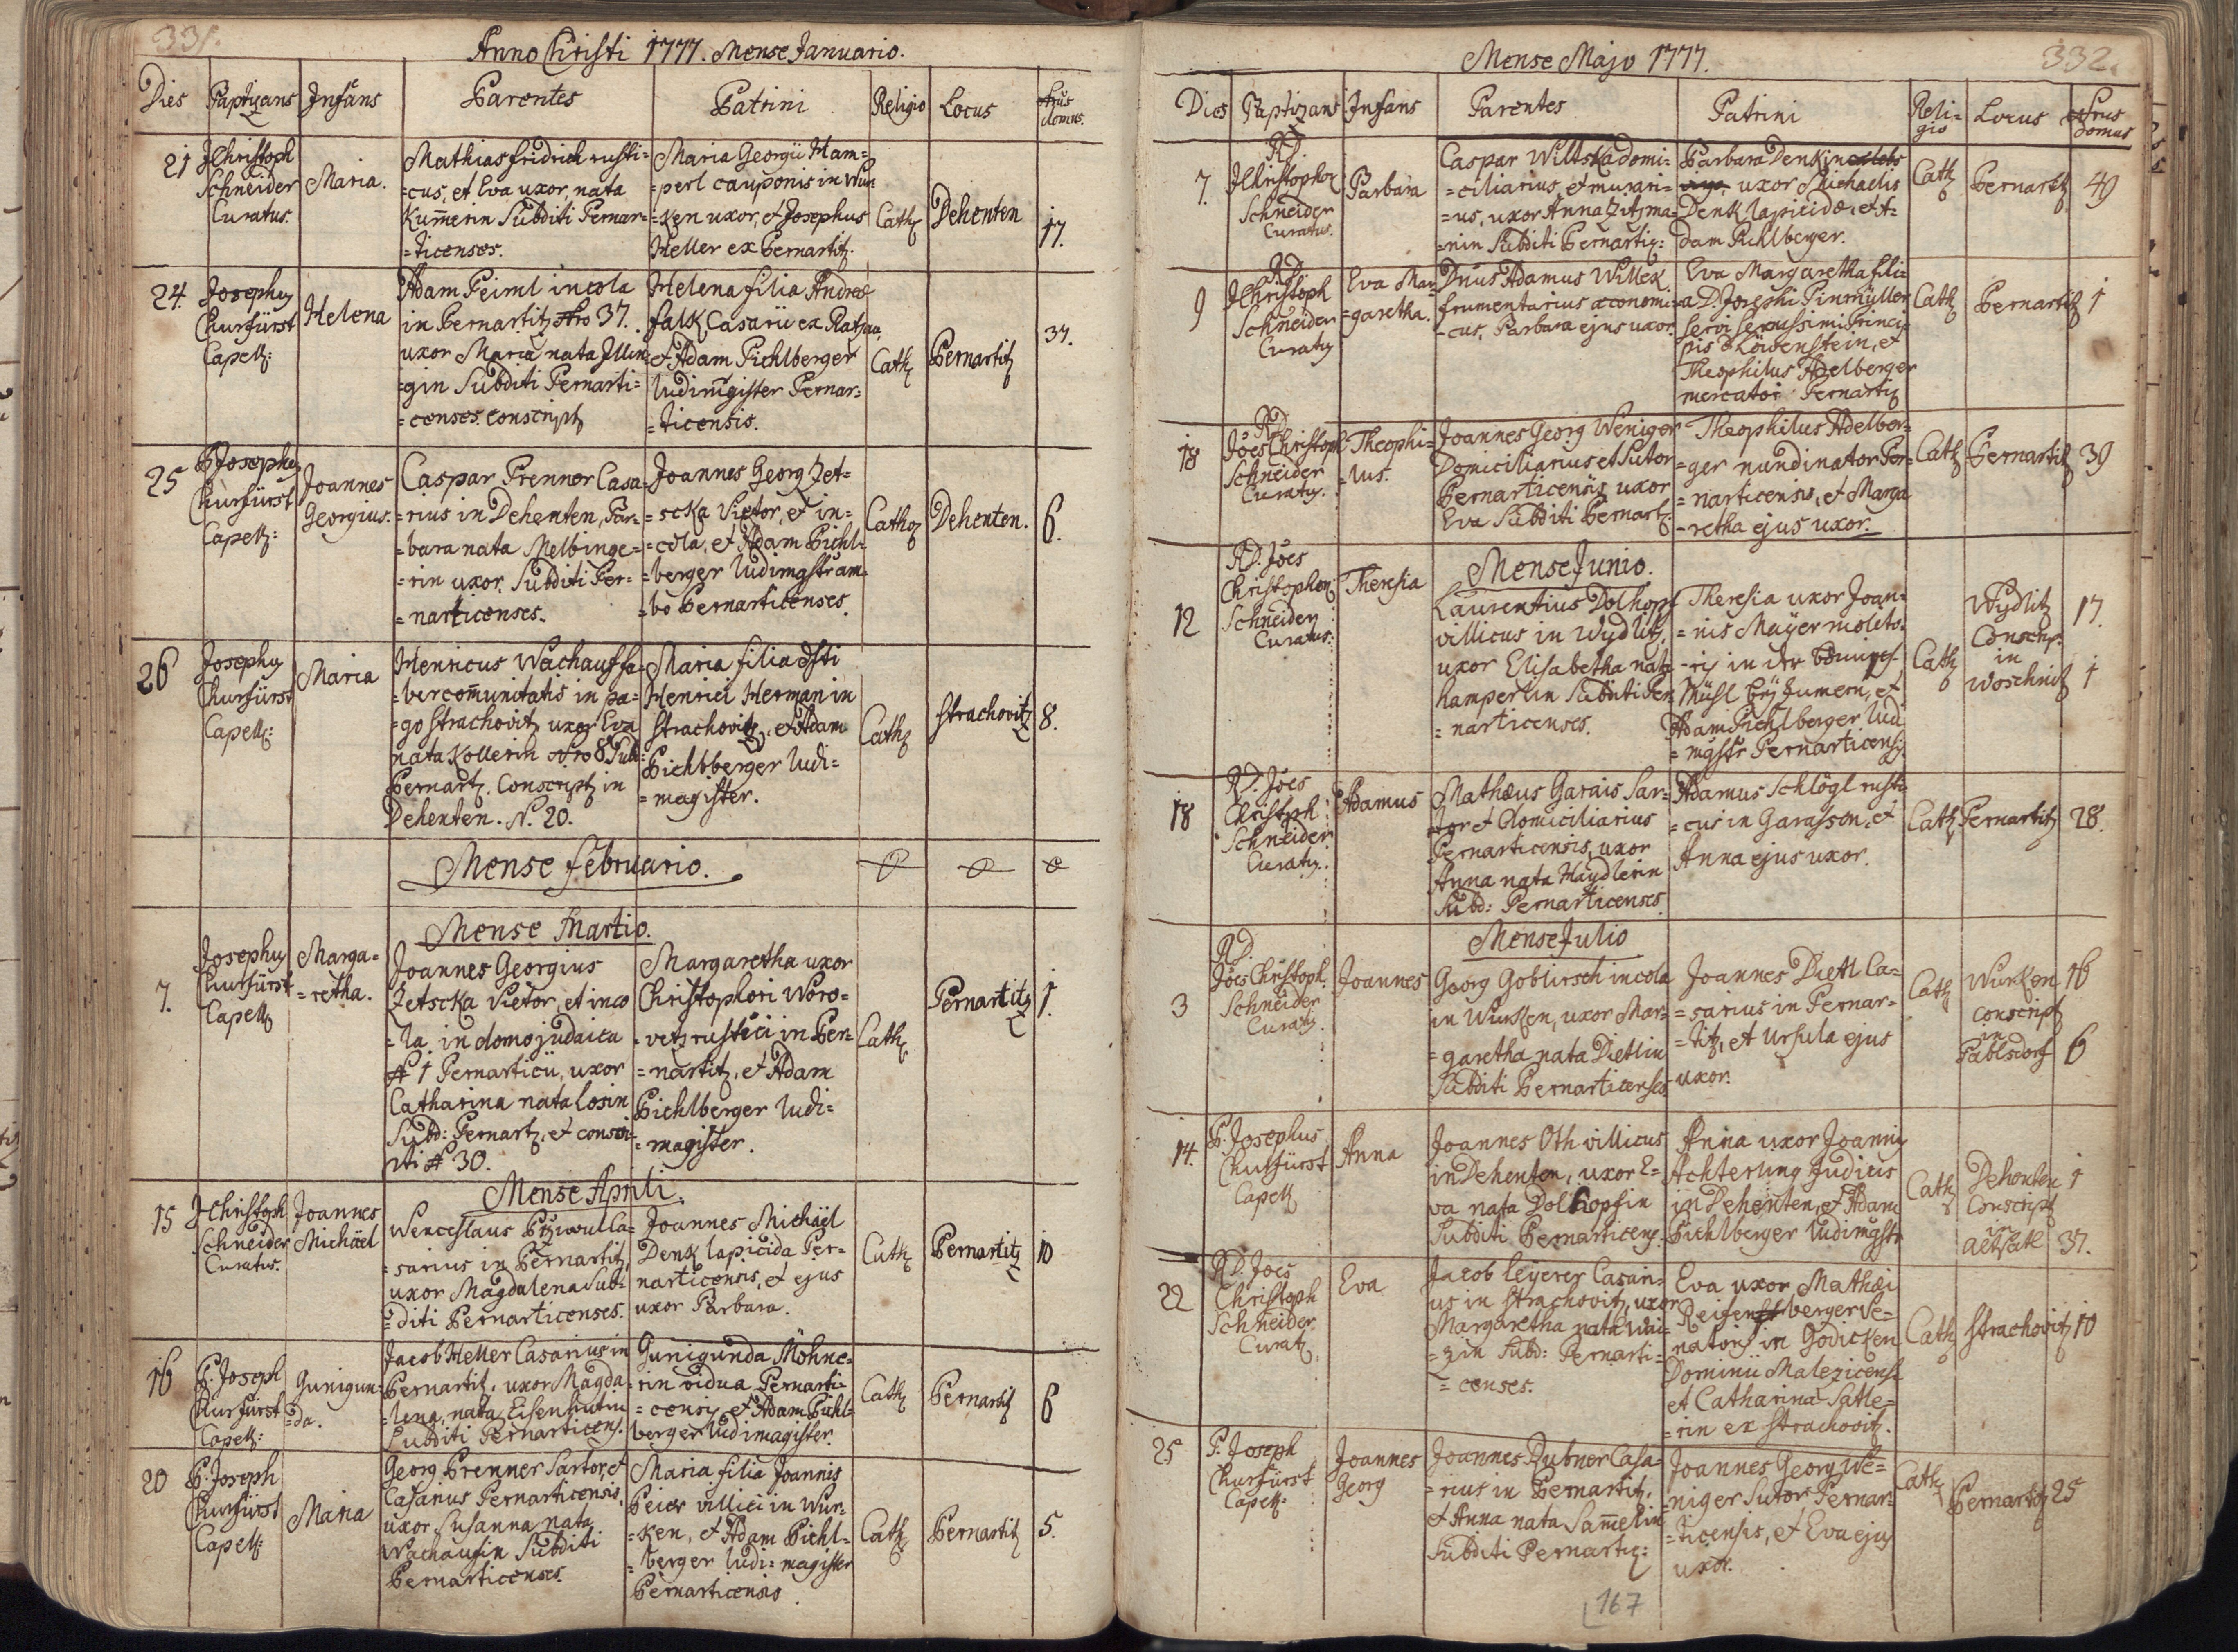 331.
Anno Christi 1777. Mense Januario.
Dies Paptizans Infans Parentes Patrini Religio Locus Nrus domus.
21 JChristoph Schneider Curatus.
Maria.
Mathias fridrich rusti=
=cus, et Eva uxor, nata
Kum̃erin Subditi Pernar=
=ticenses.
Maria Georgii Ham=
=perl cauponis in Wur=
=ken uxor, et Josephus
Heller ex Pernartitz.
Cath
Dehenten
17.
24. Josephus
Churfürst
Capell:
Helena
Adam Peiml incola
in Pernartitz Nro 37.
uxor Maria nata Illin=
=gin Subditi Pernarti=
=censes. conscript
Helena filia Andreæ
falk Casarii ex Ratzau,
et Adam Pichlberger
ludimgister Pernar=
=ticensis.
Cath
Pernartitz
37.
25 P Josephus
Churfürst
Capell:
Joannes
Georgius.
Caspar Prenner Casa=
=rius in Dehenten, Bar=
=bara nata Melbinge=
=rin uxor. Subditi Per=
=narticenses.
Joannes Georg Zet=
=scka Vietor, et in=
=cola, et Adam Pichl=
=berger ludimgstr am=
=bo Pernarticenses.
Cath
Dehenten.
6.
26 Josephus
Churfürst
Capell:
Maria
Henricus Wachauf fa=
=ber com̃unitatis in pa=
=go Strachovitz uxor Eva
nata Kollerin Nro 8 Sub:
Pernart. Conscript in
Dehenten. N. 20.
Maria filia
Henrici Herman in
Strachovitz, et Adam
Pichlberger ludi=
=magister.
Cath
Strachovitz
8.
Mense februario.
Mense Martio.
7. Josephus
Churfürst
Capell
Marga=
=retha.
Joannes Georgius
Zetscka Vietor, et inco
=la in domo judaica
# 1 Pernarticii, uxor
Catharina nata Losin
Subd: Pernart, et conscri=
pti # 30.
Margaretha uxor
Christophori Woro=
=vetz rustici in Per=
=nartitz, et Adam
Pichlberger ludi=
=magister.
Cath
Pernartitz
1.
Mense Aprili.
15 JChristoph
Schneider
Curatus.
Joannes
Michäel
Wenceslaus Przivul Ca=
=sarius in Pernartitz,
uxor Magdalena Sub=
=diti Pernarticenses.
Joannes Michäel
Denk lapicida Per=
narticensis, et ejus
uxor Parbara.
Cath
Pernartitz
10
16 P. Joseph
Churfürst
Capell:
Gunigun=
=da.
Jacob Heller Casarius in
Pernartitz, uxor Magda
=lena, nata Eisenhutin
Subditi Pernarticens.
Gunigunda Möhne=
=rin vidua Pernarti=
=censis, et Adam Pichl=
berger ludimagister.
Cath
Pernartitz
6
20 P. Joseph
Churfürst
Capell:
Maria
Georg Prenner Sartor, et
Casarius Pernarticensis,
uxor Susanna nata
Wachaufin Subditi
Pernarticenses.
Maria filia Joannis
Peier villici in Wur=
=ken, et Adam Pichl=
=berger ludi=magister
Pernarticensis.
Cath
Pernartitz
5.
332.
Mense Majo 1777.
Dies Paptizans Infans Parentes Patrini Reli=gio Locus Nrus domus
7. RD.
JChristophor
Schneider
Curatus.
Parbara
Caspar Wiltska domi=
=ciliarius, et murari=
=us, uxor Anna Zitzma=
=nin Subditi Pernartic:
Parbara Denkin
uxor Michaelis
Denk lapicidæ, et A=
dam Pichlberger.
Cath
Pernartitz
49
9 RD.
JChristoph
Schneider
Curatus
Eva Mar=
=garetha.
Dnus Adamus Willek
frumentarius œconomi=
=cus, Parbara ejus uxor.
Eva Margaretha fili=
=a D. Josephi Pinmüller
Servi Serenissimi Princi=
pis à Löwenstein, et
Theophilus Adelberger
mercator Pernartic
Cath
Pernartitz
1
18 RD.
Jões Christoph
Schneider
Curatus.
Theophi=
=lus.
Joannes Georg Weniger
Domiciliarius et Sutor
Pernarticensis, uxor
Eva Subditi Pernart.
Theophilus Adelber=
=ger nundinator Per=
=narticensis, et Marga
=retha ejus uxor.
Cath
Pernartitz
39
Mense Junio.
12 RD. Jões
Christophor
Schneider
Curatus.
Theresia
Laurentius Dolhopf
villicus in Wydlitz,
uxor Elisabetha nata
hamperlin Subditi Per=
=narticenses.
Theresia uxor Joan=
=nis Mayer molito=
=ris in der
Mühl bey Zumern, et
Adam Pichlberger lud
=mgstr Pernarticensis
Cath
Wydlitz 17.
Conscrip.
in
Woschnitz 1
18 RD. Jões
Christoph
Schneider
Curatus.
Adamus
Mathæus Garais Sar=
tor et Domiciliarius
Pernarticensis, uxor
Anna nata Haydlerin
Subd: Pernarticenses.
Adamus Schlögl rusti
=cus in Garasson, et
Anna ejus uxor.
Cath
Pernartitz
28.
Mense Julio
3 RD.
Jões Christoph.
Schneider
Curatus.
Joannes
Georg Goblirsch incola
in Wurken, uxor Mar=
=garetha nata Dietlin
Subditi Pernarticenses.
Joannes Dietl Ca=
=sarius in Pernar=
=titz, et Ursula ejus
uxor.
Cath
Wurken 16
conscript
in
Pablsdorf 6
14. P. Josephus
Churfürst
Capell
Anna
Joannes Oth villicus
in Dehenten, uxor E=
va nata Dolhopfin
Subditi Pernarticens.
Anna uxor Joannis
Achterling Judicis
in Dehenten, et Adam
Pichlberger ludimgstr
Cath
Dehenten 1
Conscript
in
Altsatl 37.
22 RD. Joes
Christoph
Schneider
Curat
Eva
Jacob leyerer Casari=
us in Strachovitz, uxor
Margaretha nata Wai=
=zin Subd: Pernarti=
=censes.
Eva uxor Mathæi
Reisenberger Ve=
natoris in Godicken
Dominii Malezicensi
et Catharina Satle=
=rin ex Strachovitz.
Cath
Strachovitz
10
25 P. Joseph
Churfürst
Capell:
Joannes
Georg
Joannes Dubner Casa=
=rius in Pernartitz,
et Anna nata Sam̃etin
Subditi Pernartic:
Joannes Georg We=
niger Sutor Pernar=
=ticensis, et Eva ejus
uxor.
Cath
Pernartitz
25
167